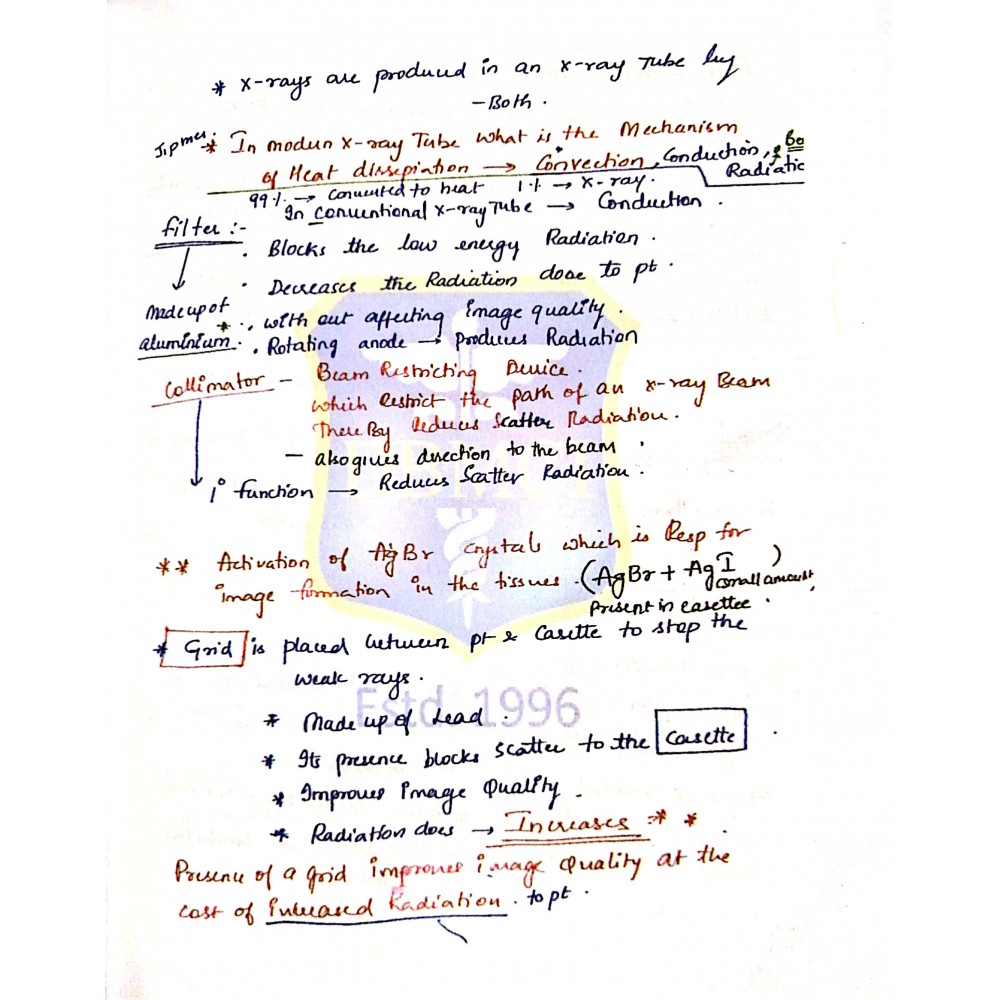 * X-rays are produced in an X-ray Tube by
- Both .
Jipmer. * In modern X-ray Tube what is the Mechanism
of Heat dissipiation → Convection, Conduction, & Radiatic
99% → converted to heat 1% → X-ray.
In Conventional X-ray Tube → Conduction .
filter :-
. Blocks the low energy Radiation .
. Decreases the Radiation dose to pt .
Made up of aluminium.
. with out affecting image quality .
. Rotating anode → produces Radiation
Collimator - Beam Restricting Device .
which Restrict the path of an x-ray Beam
There By Reduces Scatter Radiation .
- also gives direction to the beam .
1° function → Reduces Scatter Radiation .
** Activation of AgBr crystals which is Resp for
image formation in the tissues . (AgBr + AgI)
small amount,
Present in casettee .
* Grid is placed between pt & Casette to stop the
weak rays .
* Made up of Lead .
* Its presence blocks scatter to the Casette .
* Improves image Quality .
* Radiation does → Increases * * .
Presence of a grid improves image Quality at the
cost of increased Radiation . to pt .
Estd. 1996